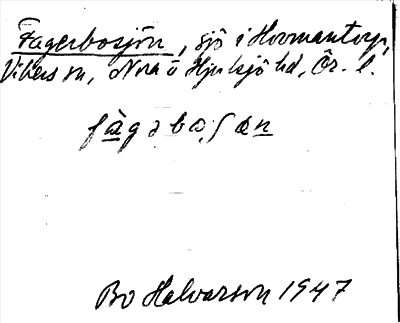 Fagerbosjön, sjö i Hovmantorp,
Vikers sn, Nora o Hjulsjö hd, Ör. l.
fàgəboʃön
Bo Halvarson 1947